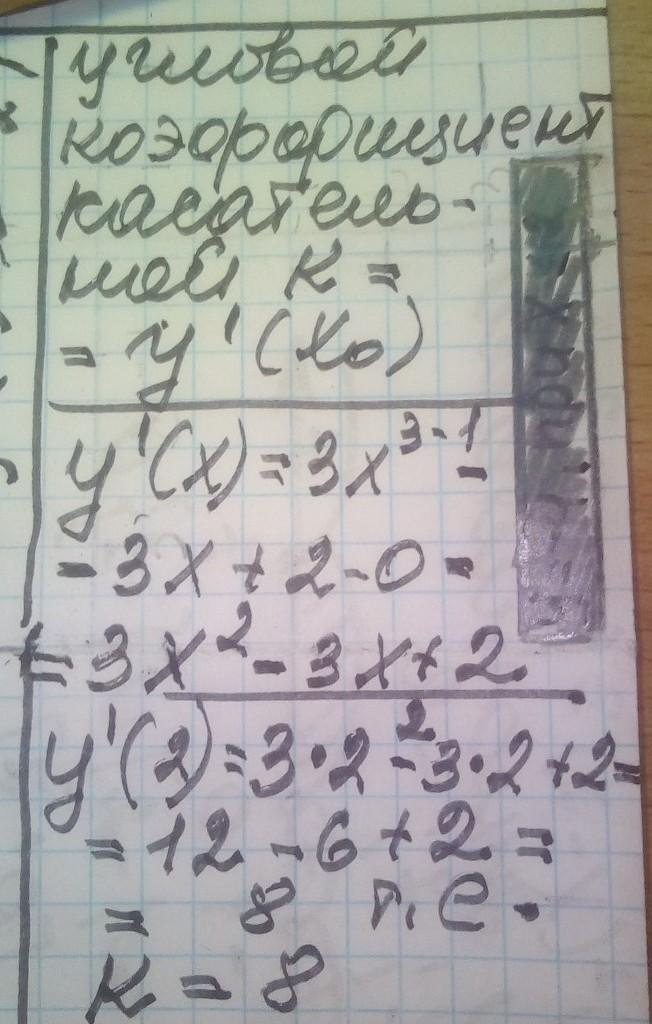 угловой
коэффициент
касатель-
ной K =
= y'(x₀)
y'(x) = 3x³⁻¹ -
- 3x + 2 - 0 =
= 3x² - 3x + 2
y'(2) = 3·2² - 3·2 + 2 =
= 12 - 6 + 2 =
= 8 т.е.
K = 8